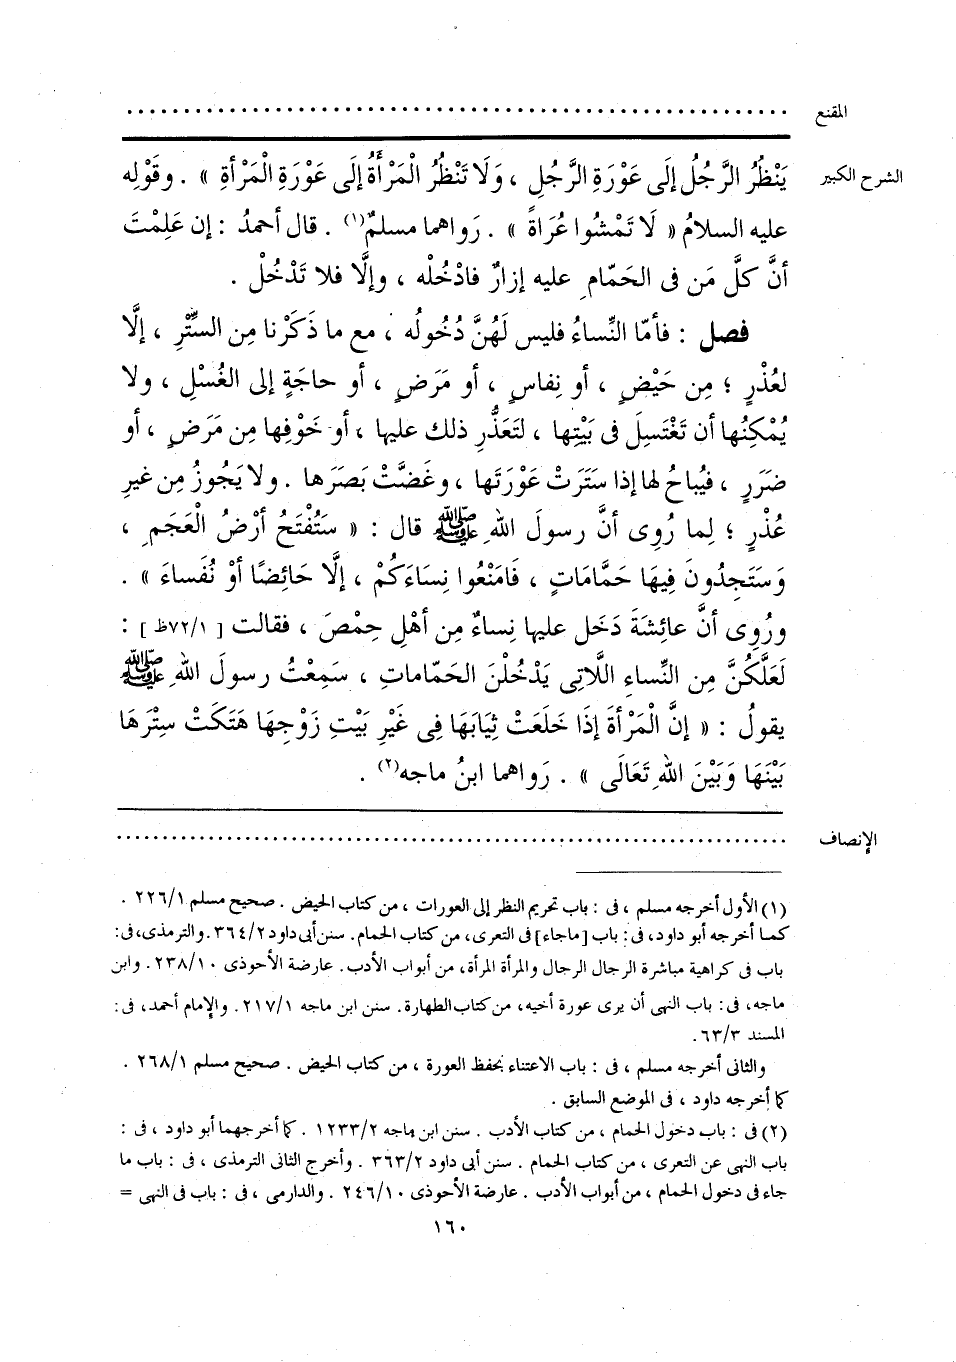 المقنع
الشرح الكبير
يَنْظُرُ الرَّجُلُ إلَى عَوْرَةِ الرَّجُلِ ، وَلَا تَنْظُرُ الْمَرْأَةُ إلَى عَوْرَةِ الْمَرْأَةِ » . وقَوْلِه
عليه السلامُ « لَا تَمْشُوا عُرَاةً » . رَواهما مسلمٌ(١) . قال أحمدُ : إن عَلِمْتَ
أنَّ كلَّ مَن فى الحَمّامِ عليه إزارٌ فادْخُلْه ، وإلَّا فلا تَدْخُلْ .
فصل : فأمّا النِّساءُ فليس لَهُنَّ دُخُولُه ، مع ما ذَكَرْنا مِن السِّتْرِ ، إلَّا
لعُذْرٍ ؛ مِن حَيْضٍ ، أو نِفاسٍ ، أو مَرَضٍ ، أو حاجَةٍ إلى الغُسْلِ ، ولا
يُمْكِنُها أن تَغْتَسِلَ فى بَيْتِها ، لتَعَذُّرِ ذلك عليها ، أو خَوْفِها مِن مَرَضٍ ، أو
ضَرَرٍ ، فيُباحُ لها إذا سَتَرَتْ عَوْرَتَها ، وغَضَّتْ بَصَرَها . ولا يَجُوزُ مِن غيرِ
عُذْرٍ ؛ لِما رُوِى أنَّ رسولَ اللهِ ﷺ قال : « سَتُفْتَحُ أرْضُ الْعَجَمِ ،
وَسَتَجِدُونَ فِيهَا حَمَّامَاتٍ ، فَامْنَعُوا نِسَاءَكُمْ ، إلَّا حَائِضًا أوْ نُفَساءَ » .
ورُوِى أنَّ عائِشَةَ دَخَل عليها نِساءٌ مِن أهْلِ حِمْصَ ، فقالت [ ٧٢/١ظ ] :
لَعَلَّكُنَّ مِن النِّساءِ اللَّاتِى يَدْخُلْنَ الحَمّاماتِ ، سَمِعْتُ رسولَ اللهِ ﷺ
يقولُ : « إنَّ الْمَرْأَةَ إذَا خَلَعَتْ ثِيَابَهَا فِى غَيْرِ بَيْتِ زَوْجِهَا هَتَكَتْ سِتْرَهَا
بَيْنَهَا وَبَيْنَ اللهِ تَعَالَى » . رَواهما ابنُ ماجه(٢) .
الإنصاف
(١) الأول أخرجه مسلم ، فى : باب تحريم النظر إلى العورات ، من كتاب الحيض . صحيح مسلم ٢٢٦/١ .
كما أخرجه أبو داود، فى: باب [ماجاء] فى التعرى، من كتاب الحمام. سنن أبى داود ٣٦٤/٢. والترمذى، فى:
باب فى كراهية مباشرة الرجال الرجال والمرأة المرأة، من أبواب الأدب. عارضة الأحوذى ٢٣٨/١٠. وابن
ماجه، فى: باب النهى أن يرى عورة أخيه، من كتاب الطهارة. سنن ابن ماجه ٢١٧/١. والإمام أحمد، فى:
المسند ٦٣/٣.
والثانى أخرجه مسلم ، فى : باب الاعتناء بحفظ العورة ، من كتاب الحيض . صحيح مسلم ٢٦٨/١ .
كما أخرجه داود ، فى الموضع السابق .
(٢) فى : باب دخول الحمام ، من كتاب الأدب . سنن ابن ماجه ١٢٣٣/٢ . كما أخرجهما أبو داود ، فى :
باب النهى عن التعرى ، من كتاب الحمام . سنن أبى داود ٣٦٣/٢ . وأخرج الثانى الترمذى ، فى : باب ما
جاء فى دخول الحمام ، من أبواب الأدب . عارضة الأحوذى ٢٤٦/١٠ . والدارمى ، فى : باب فى النهى =
١٦٠